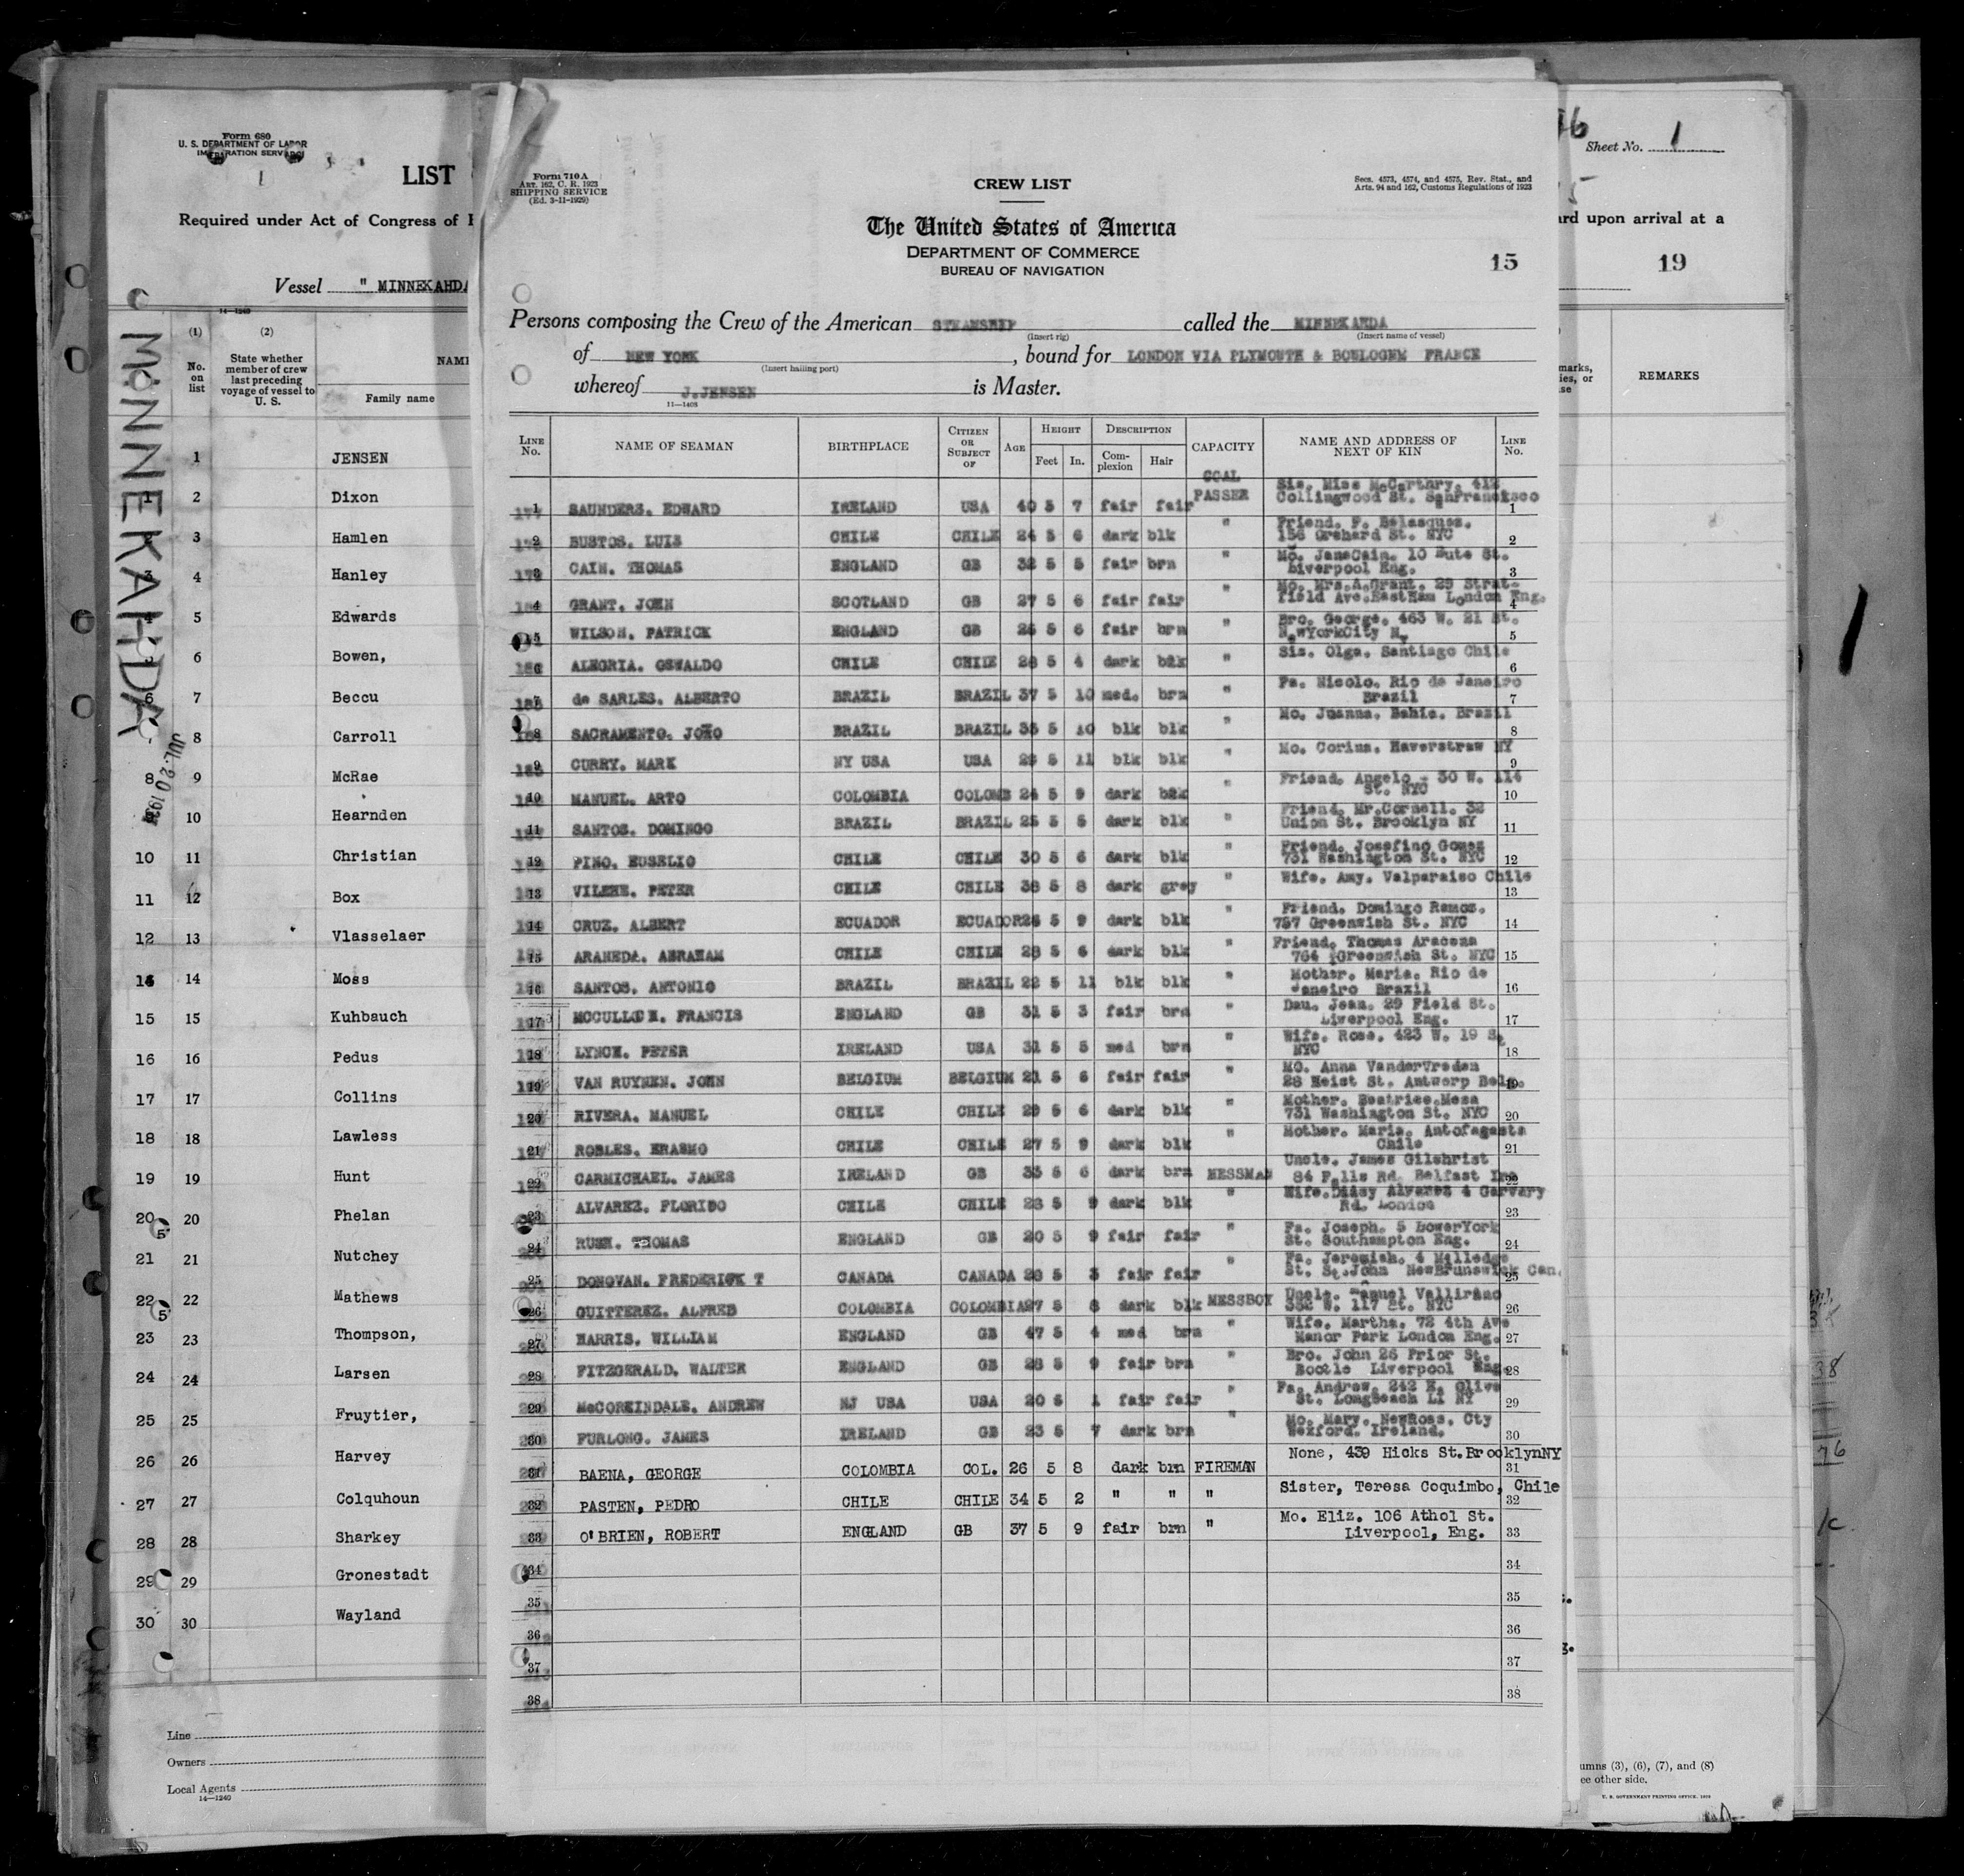 Form 680
U. S. DEPARTMENT OF LABOR
IMMIGRATION SERVICE
1
LIST
Required under Act of Congress of
Vessel " MINNEKAHDA
14—1240
(1) (2)
No. on list
State whether member of crew last preceding voyage of vessel to U. S.
NAME
Family name
MONNEKAHDA
JUL 20
1 JENSEN
1 2 Dixon
3 Hamlen
3 4 Hanley
4 5 Edwards
6 Bowen,
6 7 Beccu
8 Carroll
8 9 McRae
10 Hearnden
10 11 Christian
11 12 Box
12 13 Vlasselaer
14 14 Moss
15 15 Kuhbauch
16 16 Pedus
17 17 Collins
18 18 Lawless
19 19 Hunt
20 20 Phelan
21 21 Nutchey
22 22 Mathews
23 23 Thompson,
24 24 Larsen
25 25 Fruytier,
26 26 Harvey
27 27 Colquhoun
28 28 Sharkey
29 29 Gronestadt
30 30 Wayland
Line
Owners
Local Agents
14—1240
Form 710 A
ART. 162, C. R. 1923
SHIPPING SERVICE
(Ed. 3-11-1929)
CREW LIST
Secs. 4573, 4574, and 4575, Rev. Stat., and
Arts. 94 and 162, Customs Regulations of 1923
The United States of America
DEPARTMENT OF COMMERCE
BUREAU OF NAVIGATION
15
Persons composing the Crew of the American STEAMSHIP called the MINNEKAHDA
(Insert rig) (Insert name of vessel)
of NEW YORK, bound for LONDON VIA PLYMOUTH & BOULOGNE FRANCE
(Insert hailing port)
whereof J.JENSEN is Master.
11—1408
LINE No. NAME OF SEAMAN BIRTHPLACE CITIZEN OR SUBJECT OF AGE HEIGHT Feet In. DESCRIPTION Complexion Hair CAPACITY NAME AND ADDRESS OF NEXT OF KIN LINE No.
1 SAUNDERS. EDWARD IRELAND USA 40 5 7 fair fair COAL PASSER Sis. Miss McCarthry. 412 Collingwood St. SanFrancisco 1
2 BUSTOS. LUIS CHILE CHILE 24 5 6 dark blk " Friend. F. Belasques. 156 Orchard St. NYC 2
3 CAIN. THOMAS ENGLAND GB 32 5 5 fair brn " Mo. JaneCain. 10 Bute St. Liverpool Eng. 3
4 GRANT. JOHN SCOTLAND GB 27 5 6 fair fair " Mo. Mrs.A.Grant. 29 Stratfield Ave.EastHam London Eng. 4
5 WILSON. PATRICK ENGLAND GB 26 5 6 fair brn " Bro. George. 463 W. 21 St. NewYorkCity 5
6 ALEGRIA. OSWALDO CHILE CHILE 28 5 4 dark blk " Sis. Olga. Santiago Chile 6
7 de SARLES. ALBERTO BRAZIL BRAZIL 37 5 10 med. brn " Fa. Nicolo. Rio de Janeiro Brazil 7
8 SACRAMENTO. JOÃO BRAZIL BRAZIL 36 5 10 blk blk " Mo. Juanna. Bahia. Brazil 8
9 CURRY. MARK NY USA USA 29 5 11 blk blk " Mo. Corina. Haverstraw NY 9
10 MANUEL. ARTO COLOMBIA COLOMB 24 5 9 dark blk " Friend. Angelo - 30 W. 114 St. NYC 10
11 SANTOS. DOMINGO BRAZIL BRAZIL 25 5 5 dark blk " Friend. Mr.Cornell. 32 Union St. Brooklyn NY 11
12 PINO. EUSELIO CHILE CHILE 30 5 6 dark blk " Friend. Josefino Gomez 731 Washington St. NYC 12
13 VILEHE. PETER CHILE CHILE 38 5 8 dark grey " Wife. Amy. Valparaiso Chile 13
14 CRUZ. ALBERT ECUADOR ECUADOR 26 5 9 dark blk " Friend. Domingo Ramos. 757 Greenwish St. NYC 14
15 ARANEDA. ABRAHAM CHILE CHILE 28 5 6 dark blk " Friend. Thomas Aracena 764 Greenwish St. NYC 15
16 SANTOS. ANTONIO BRAZIL BRAZIL 22 5 11 blk blk " Mother. Maria. Rio de Janeiro Brazil 16
17 MCCULLOCH. FRANCIS ENGLAND GB 31 5 3 fair brn " Dau. Jean. 29 Field St. Liverpool Eng. 17
18 LYNCH. PETER IRELAND USA 31 5 5 med brn " Wife. Rose. 423 W. 19 St NYC 18
19 VAN RUYNEN. JOHN BELGIUM BELGIUM 21 5 6 fair fair " MO. Anna VanderVreden 28 Heist St. Antwerp Belg. 19
20 RIVERA. MANUEL CHILE CHILE 29 5 6 dark blk " Mother. Beatrice.Mesa 731 Washington St. NYC 20
21 ROBLES. ERASMO CHILE CHILE 27 5 9 dark blk " Mother. Maria. Antofagasta Chile 21
22 CARMICHAEL. JAMES IRELAND GB 35 5 6 dark brn MESSMAN Uncle. James Gilshrist 84 Falls Rd. Belfast Ire 22
23 ALVAREZ. FLORIDO CHILE CHILE 23 5 9 dark blk " Wife.Diasy Alvarez 4 Garvary Rd. London 23
24 RUSH. THOMAS ENGLAND GB 20 5 9 fair fair " Fa. Joseph. 5 LowerYork St. Southampton Eng. 24
25 DONOVAN. FREDERICK T CANADA CANADA 28 5 3 fair fair " Fa. Jeremiah. 4 Milledge St. St.John NewBrunswick Can. 25
26 GUITTEREZ. ALFRED COLOMBIA COLOMBIA 27 5 8 dark blk MESSBOY Uncle. Manuel Vallirano 352 W. 117 St. NYC 26
27 HARRIS. WILLIAM ENGLAND GB 47 5 4 med brn " Wife. Martha. 72 4th Ave Manor Park London Eng. 27
28 FITZGERALD. WALTER ENGLAND GB 28 5 9 fair brn " Bro. John 26 Prior St. Bootle Liverpool Eng. 28
29 McCOREINDALE. ANDREW NJ USA USA 20 5 1 fair fair " Fa. Andrew. 242 E. Olive St. LongBeach LI NY 29
30 FURLONG. JAMES IRELAND GB 23 5 7 dark brn " Mo. Mary. NewRoss. Cty Wexford. Ireland. 30
31 BAENA, GEORGE COLOMBIA COL. 26 5 8 dark brn FIREMAN None, 439 Hicks St.BrooklynNY 31
32 PASTEN, PEDRO CHILE CHILE 34 5 2 " " " Sister, Teresa Coquimbo, Chile 32
33 O'BRIEN, ROBERT ENGLAND GB 37 5 9 fair brn " Mo. Eliz. 106 Athol St. Liverpool, Eng. 33
34 34
35 35
36 36
37 37
38 38
Sheet No. 1
ard upon arrival at a
19
REMARKS
umns (3), (6), (7), and (8)
ee other side.
U. S. GOVERNMENT PRINTING OFFICE